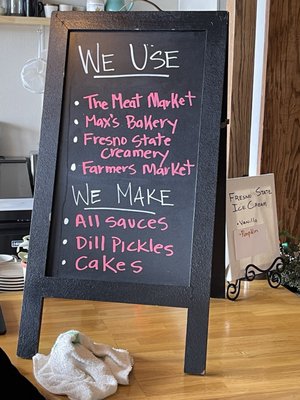 We Use
• The Meat Market
• Max's Bakery
• Fresno State
Creamery
• Farmers Market
We Make
• All sauces
• Dill Pickles
• Cakes
Fresno State
Ice Cream
• Vanilla
• Pumpkin